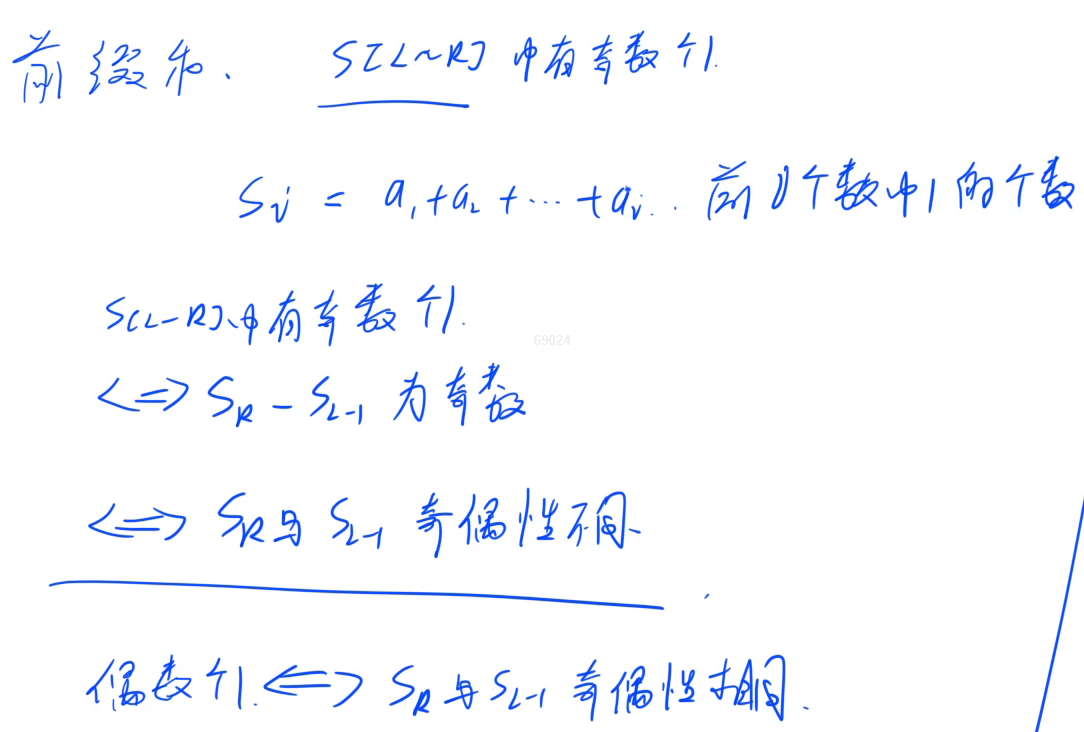 前缀和. S[L~R] 中有奇数个1.
Si = a1+a2+…+ai.. 前i个数中1的个数
S[L-R]中有奇数个1.
69024
<=> SR - SL-1 为奇数
<=> SR与 SL-1 奇偶性不同.
偶数个1.<=> SR与SL-1 奇偶性相同.